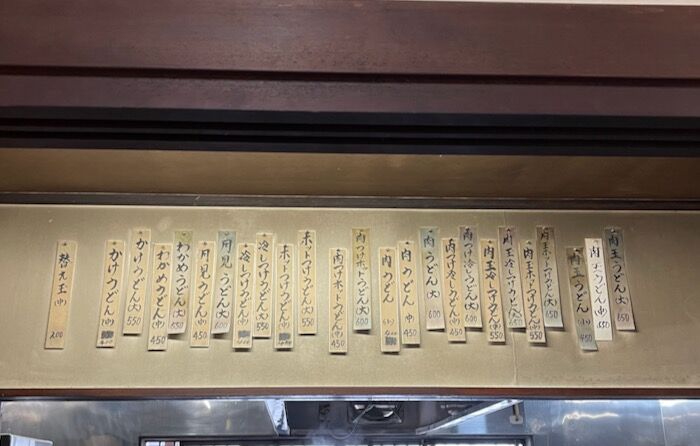 肉玉うどん(大) 650
肉玉うどん(中) 550
肉玉うどん(小) 450
肉玉ホットつけうどん(大) 650
肉玉ホットつけうどん(中) 550
肉玉冷しつけうどん(大) 650
肉玉冷しつけうどん(中) 550
肉つけ冷しうどん(大) 600
肉つけ冷しうどん(中) 450
肉うどん(大) 600
肉うどん(中) 450
肉うどん(小) 400
肉つけホットうどん(大) 600
肉つけホットうどん(中) 450
ホットつけうどん(大) 550
ホットつけうどん(中)
冷しつけうどん(大) 550
冷しつけうどん(中)
月見うどん(大) 600
月見うどん(中) 450
わかめうどん(大) 550
わかめうどん(中) 450
かけうどん(大) 550
かけうどん(中)
替え玉(中) 200